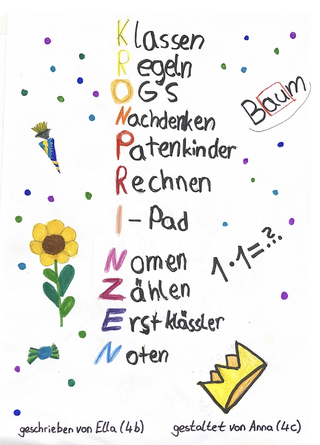 Klassen
Regeln
OGS
Nachdenken
Patenkinder
Rechnen
I-Pad
Nomen
Zählen
Erstklässler
Noten
Baum
1·1=?
geschrieben von Ella (4b)
gestaltet von Anna (4c)